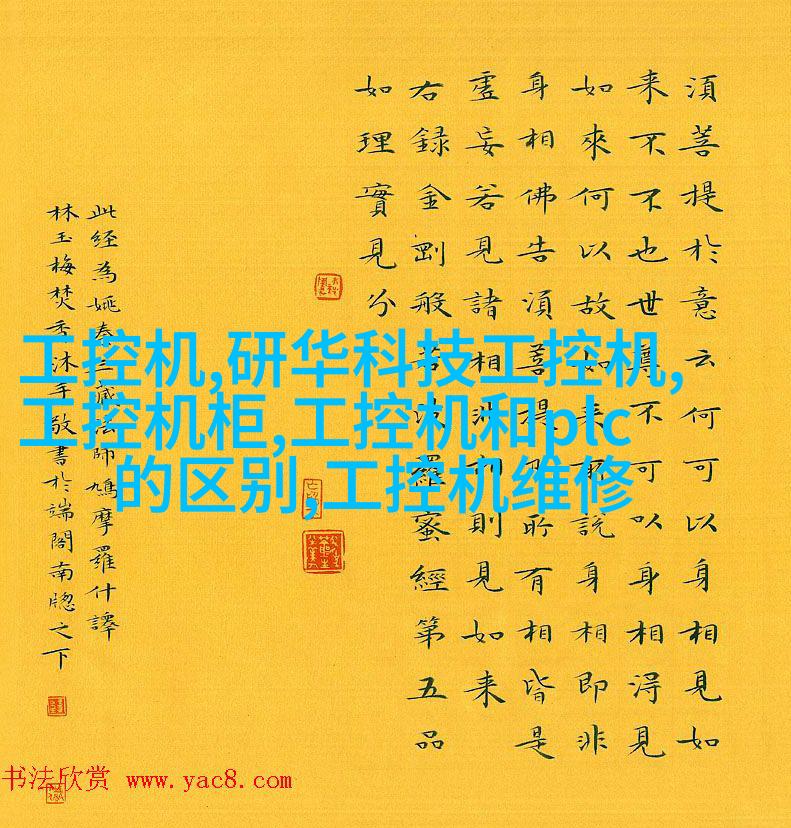 須菩提於意云何可以身相見如
来不不也世尊不可以身相得見
如來何以故如来所説身相即非
身相佛告須菩提凡所有相皆是
虛妄若見諸相非相則見如来
右録金剛般若波羅蜜經第五品
如理實見分
此経為姚秦三藏法師鳩摩羅什譯
林玉梅焚香沐手敬書於端閣南牕之下
工控机,研华科技工控机,
工控机柜,工控机和plc
的区别,工控机维修
书法欣赏 www.yac8.com